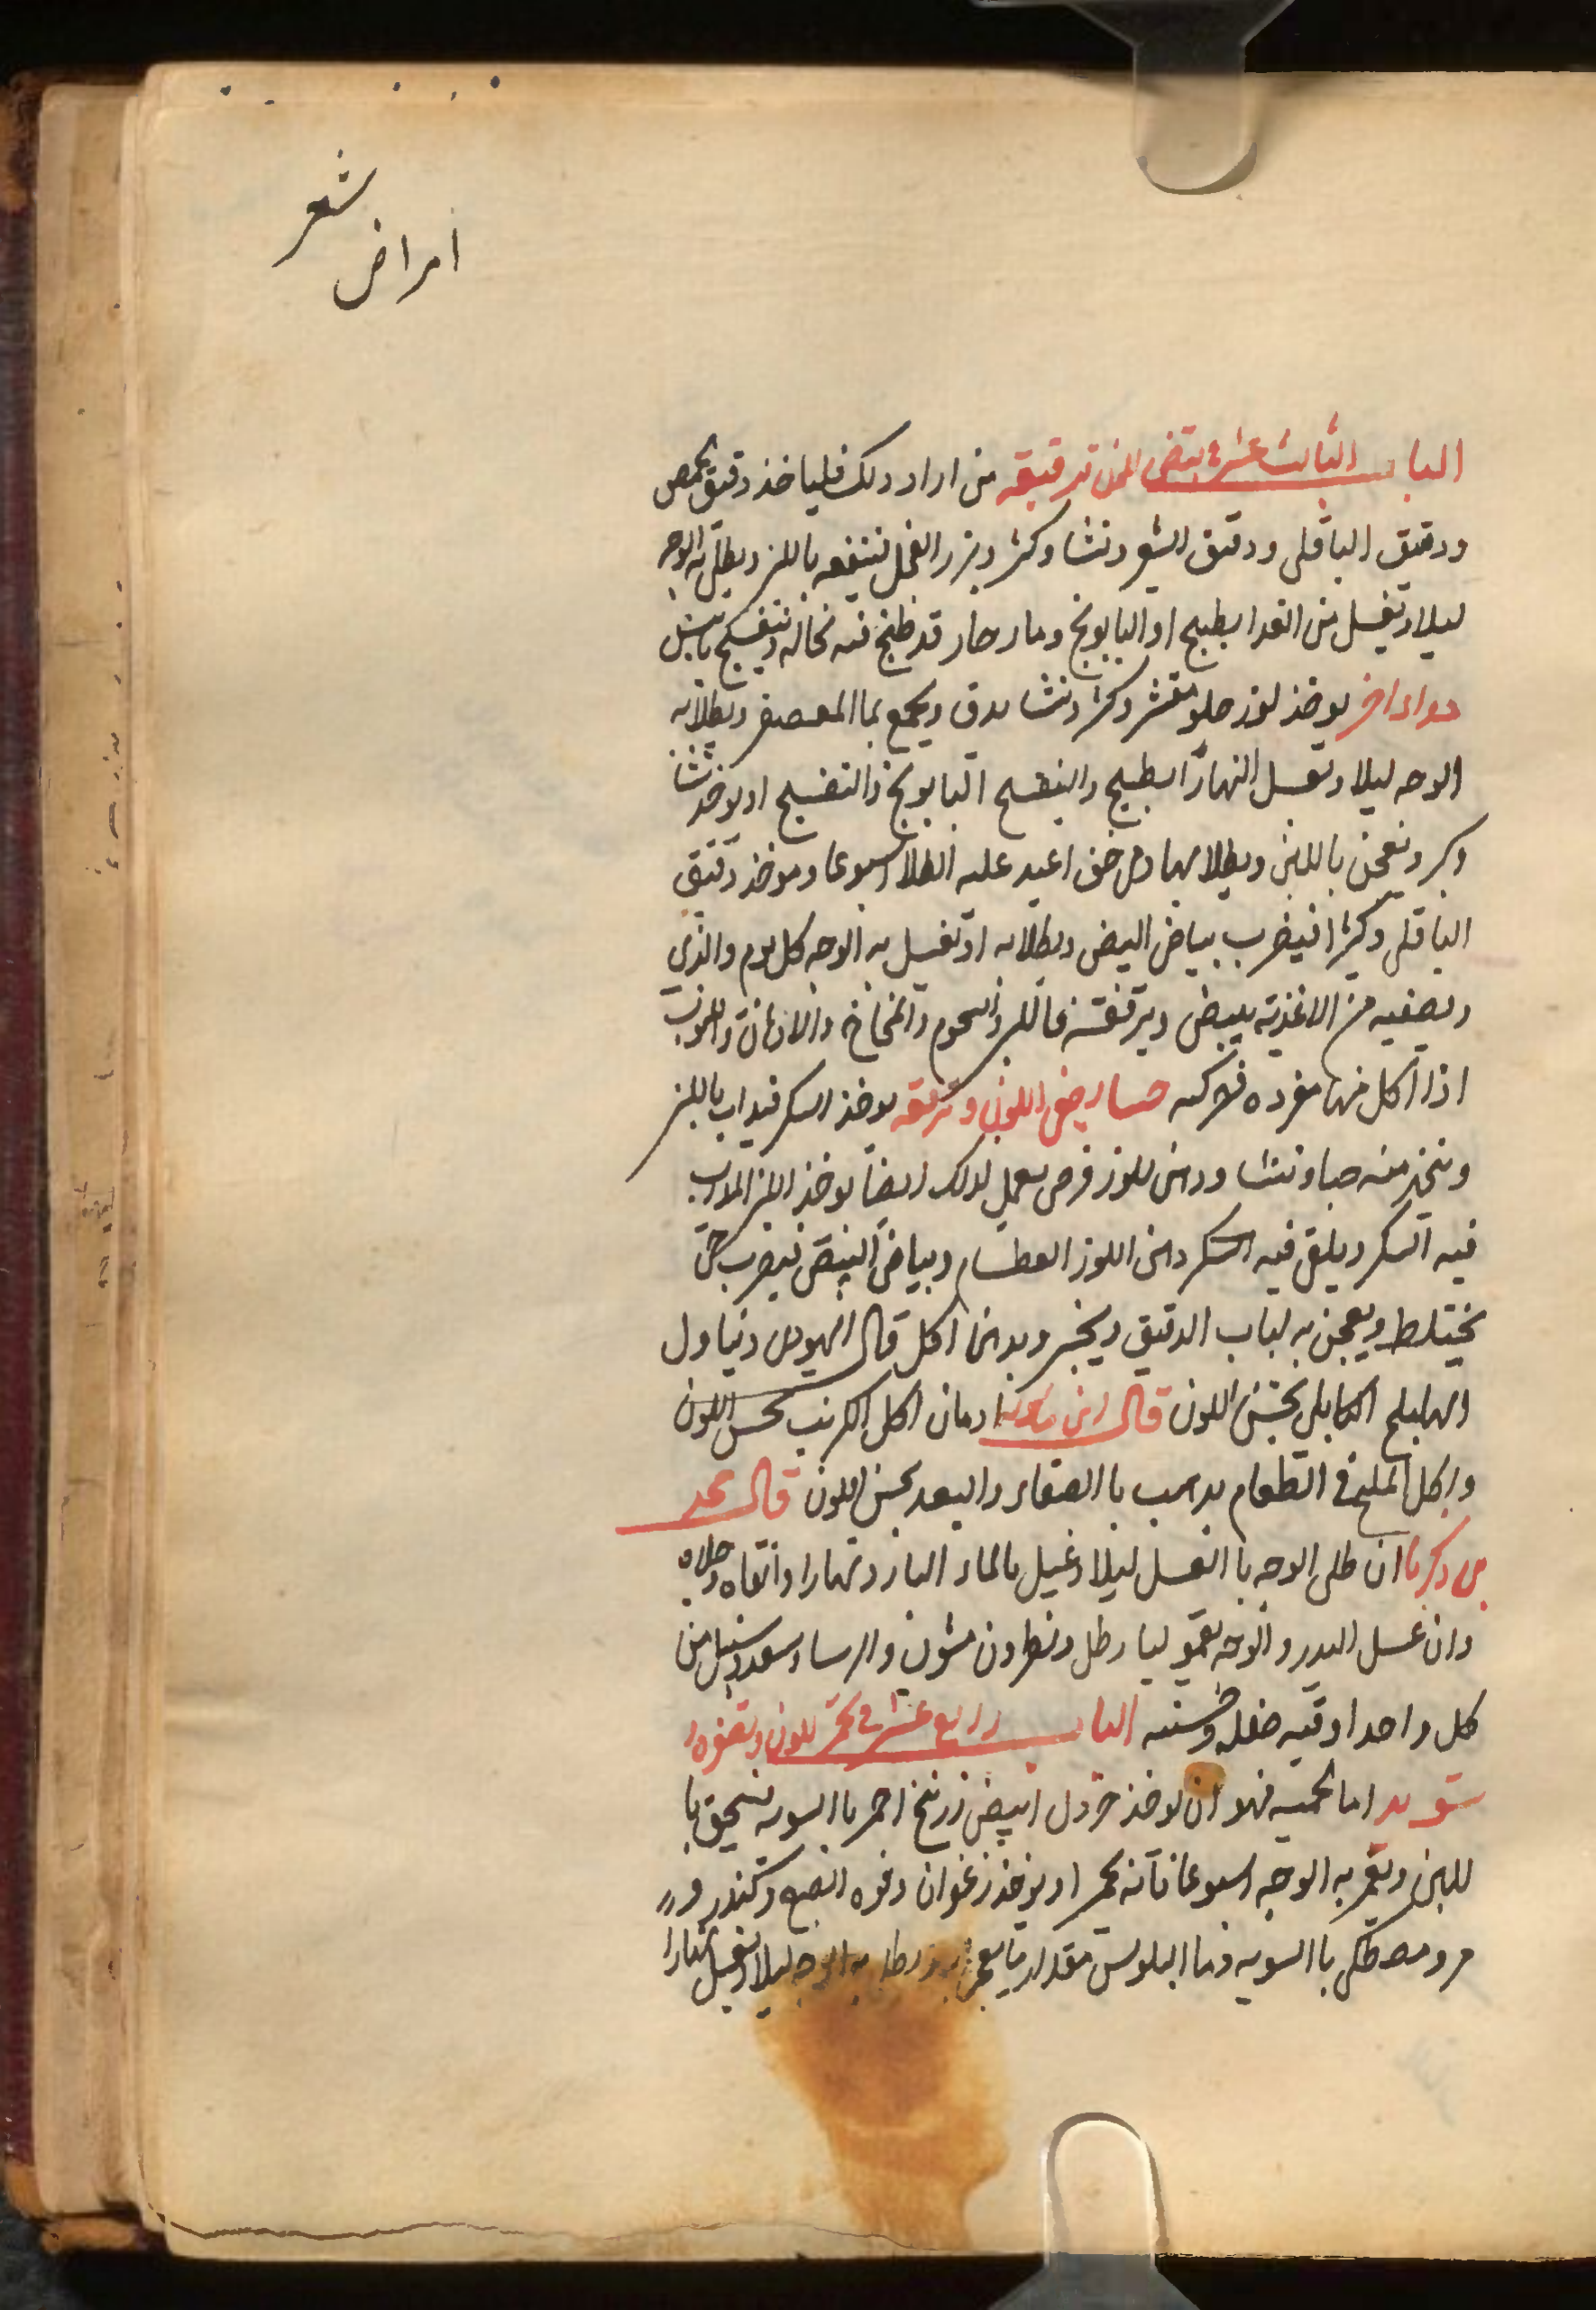 شعر
امراض
الباب الثالث عشر فى تبيض اللون وترقيقه من اراد ذلك فلياخذ دقيق الحمص
ودقيق الباقلى ودقيق الشعير ونشا وكثيرا وبزر الفجل فينقعه باللبن ويطلى به الوجه
ليلا ويغسل من الغدا بطبيخ او البابونج وما حار قد طبخ فيه نخاله وبنفسج يابس
دوا اخر يوخذ لوز حلو مقشر وكثيرا ونشا يدق ويجمع بما المعصفر ويطلا به
الوجه ليلا ويغسل النهار بطبيخ والبنفسج البابونج والبنفسج او يوخذ نشا
وكثيرا ويعجن باللبن ويطلا بها وان جف اعيد عليه الطلا اسبوعا ويوخذ دقيق
الباقلى وكثيرا فيضرب ببياض البيض ويطلا به او يغسل به الوجه كل يوم والذى
ويصفيه من الاغذيه يبيض ويرققه فاللبن واللحوم والمخاخ والادهان والحبوب
اذا اكل منها مفرده مركبه حسا يبيض اللون ويرققه يوخذ السكر فيداب باللبن
ويتخذ منه حسا ونشا ودهن اللوز قرص يعمل لذلك ايضا يوخذ اللبن المداب
فيه السكر ويلقى فيه السكر دهن اللوز العظام وبياض البيض فيضرب حتى
يختلط ويعجن به لباب الدقيق ويخبز ويدمن اكل قال اليهودى وتناول
الهليلج الكابلى يحسن اللون قال ابن ماسويه ادمان اكل الكرنب يحسن اللون
واكل الملح فى الطعام يذهب با الصفار والبعد يحسن اللون قال محمد
بن زكريا ان طلى الوجه با العسل ليلا وغسل بالماء البارد نهارا وانقاه وجلاه
وان غسل البدن والوجه بقموليا رطل ونطرون مشوى وايرسا وسعد وسنبل من
كل واحد اوقيه صقله وحسنه الباب رابع عشر فى تحمير اللون وتصفيره و
تسويد اما تحميره فهو ان يوخذ خردل ابيض زرنيخ احمر با السويه يسحق با
للبن ويغمر به الوجه اسبوعا فانه يحمر او يوخذ زعفران وفوه الصبغ وكندر و
مر ومصطكى با السويه وما البلوس مقدار ما يعجن به ويطلى به الوجه ليلا ويغسل نهارا